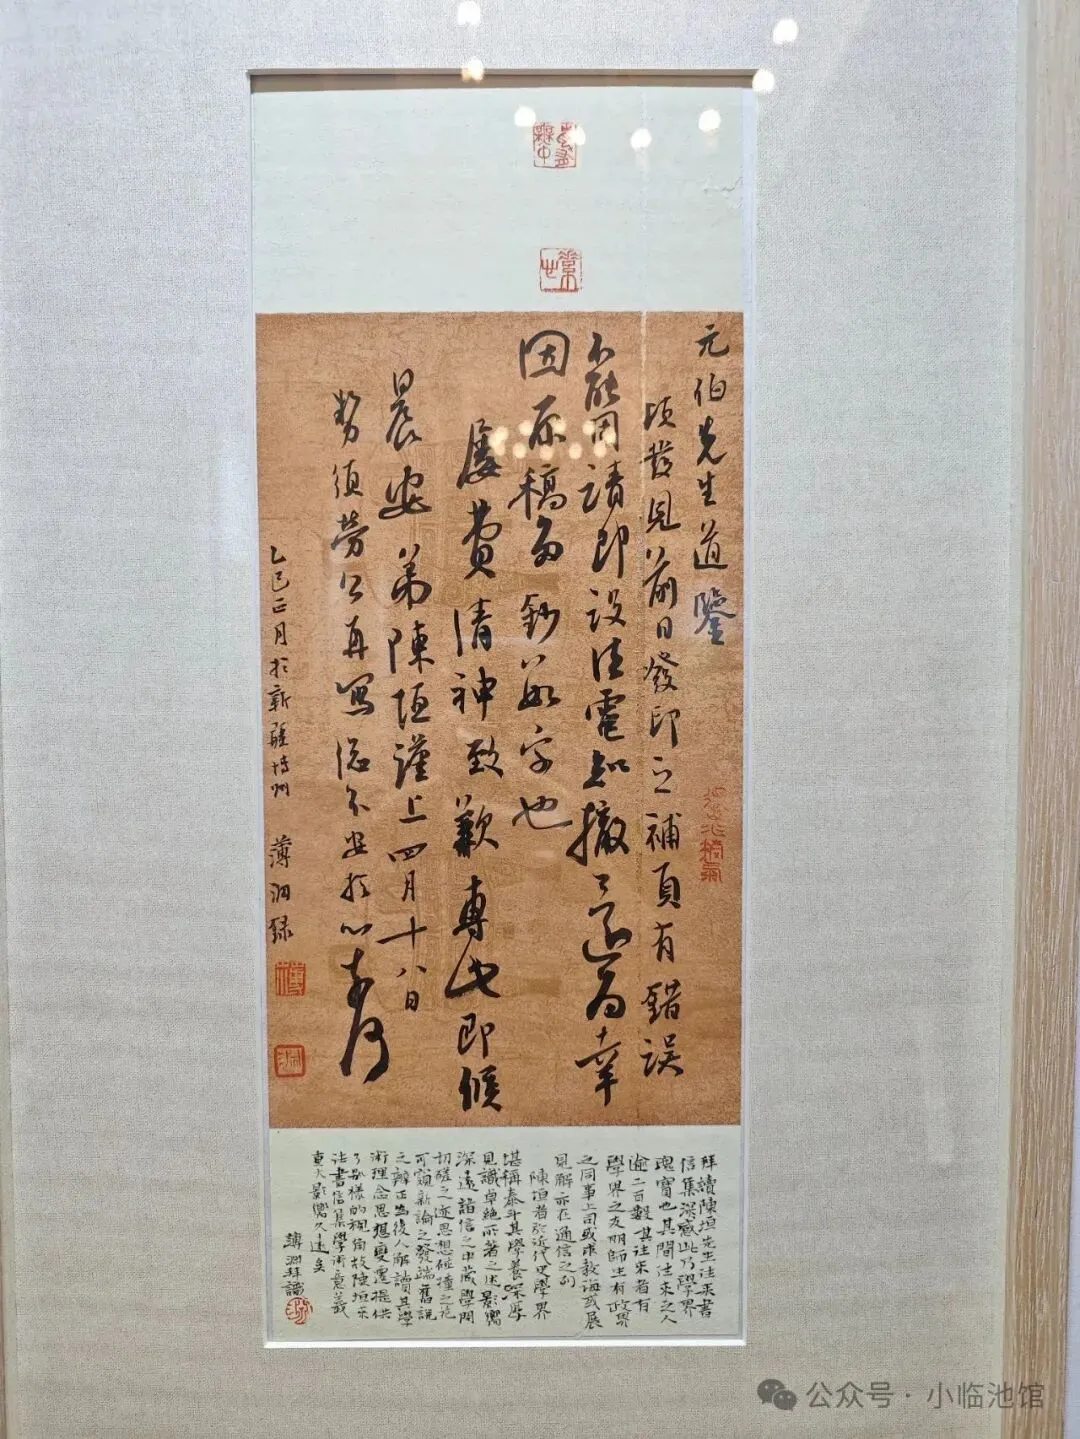 元伯先生道鑒
頃發見前日發印之補頁有錯誤
不能用請即設法電知撤還為幸
因原稿多鈔一如字也
屡費清神致歉專此即候
晨安 弟陳垣謹上四月十八日
勢須勞公再寫
不安於心奈何
乙巳正月於新疆博州 薄洇録
拜讀陳垣先生往来書
信集深感此乃學界
瑰寶也其間往来之人
逾二百數其往来者有
學界之友朋師生有政界
之同事上司或求教海或展
見解亦在通信之列
陳垣者於近代史學界
堪稱泰斗其學養深厚
見識卓絶所著之述影響
深遠諸信之中藏學問
切磋之迹思想碰撞之花
可窺新論之發端舊説
之辨正為後人解讀其學
術理念思想變遷提供
了别樣的視角故陳垣来
往書信集學術意義
重大影響久遠矣
公众号·小临池馆